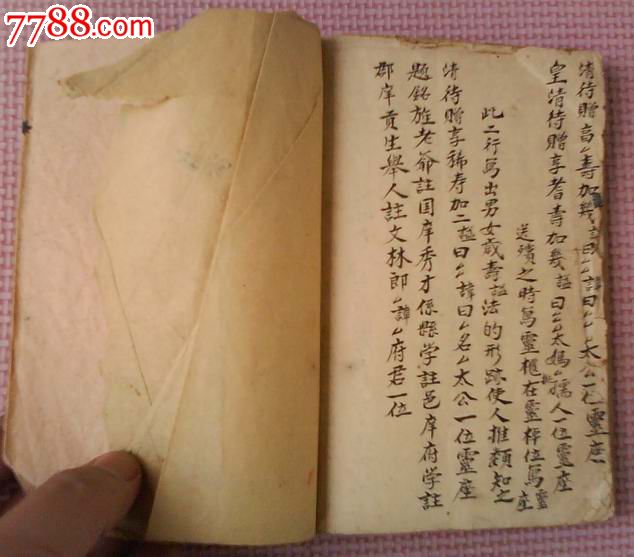 7788.com
清待贈高〻壽加幾謚曰〻〻諱曰〻〻太公一位靈座
皇清待贈享耆壽加幾謚曰〻〻太媽〻孺人一位靈座
送殯之時寫靈柩在靈棹位寫靈座
此二行寫出男女歲壽謚法的形跡使人推類知之
清待贈享稀寿加二謚曰〻〻諱曰〻名〻太公一位靈座
題銘旌老爺註国庠秀才係縣学註邑庠府学註
郡庠貢生舉人註文林郎〻諱〻府君一位